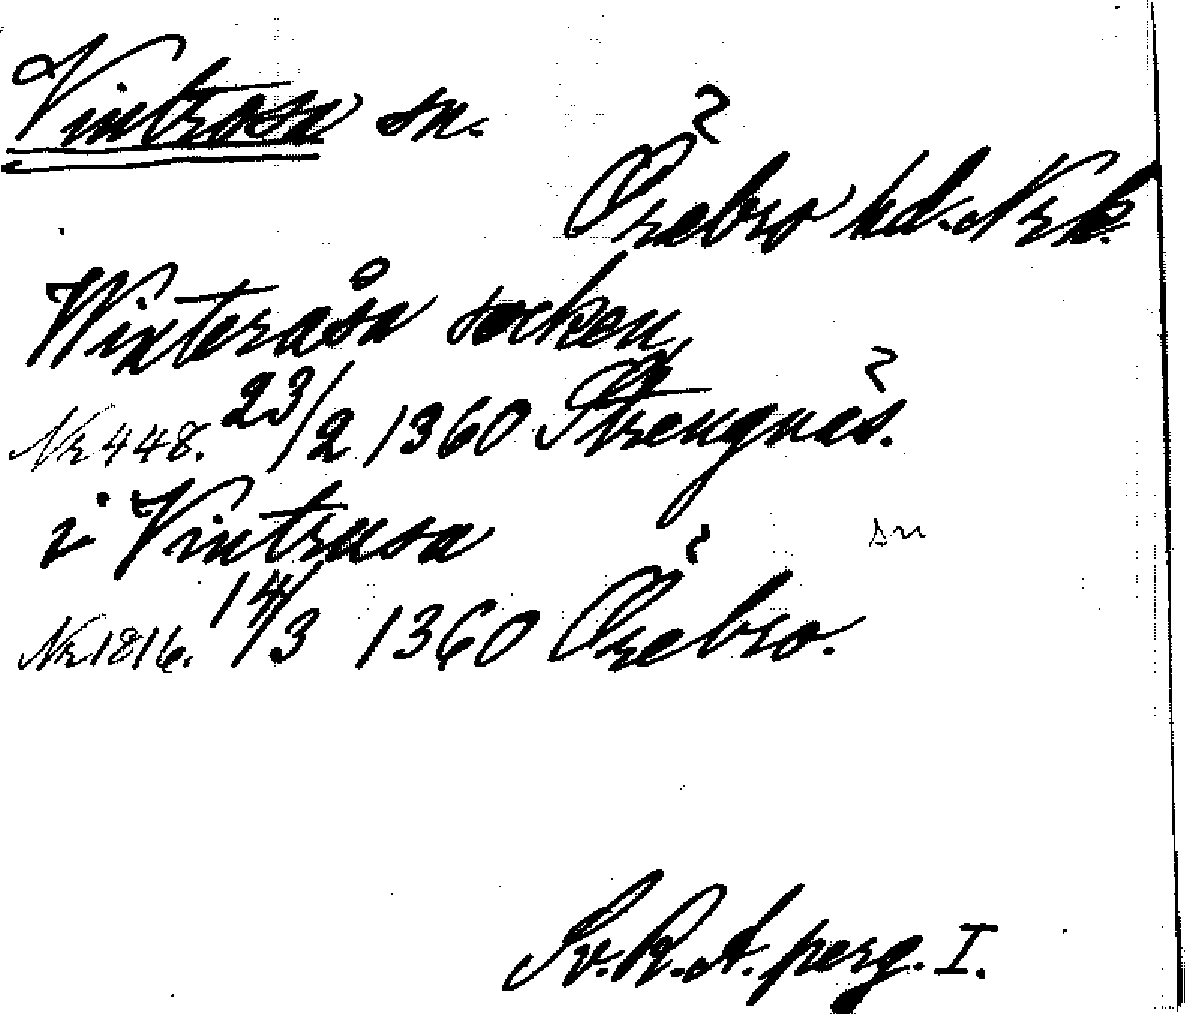 Vintrosa sn.
Örebro hd. Nrk.
Winteråsa socken,
Nr 448. 23/2 1360 Strengnäs.
i Vintrusa sn
Nr 1816. 14/3 1360 Örebro.
Sv. R. A. perg. I.